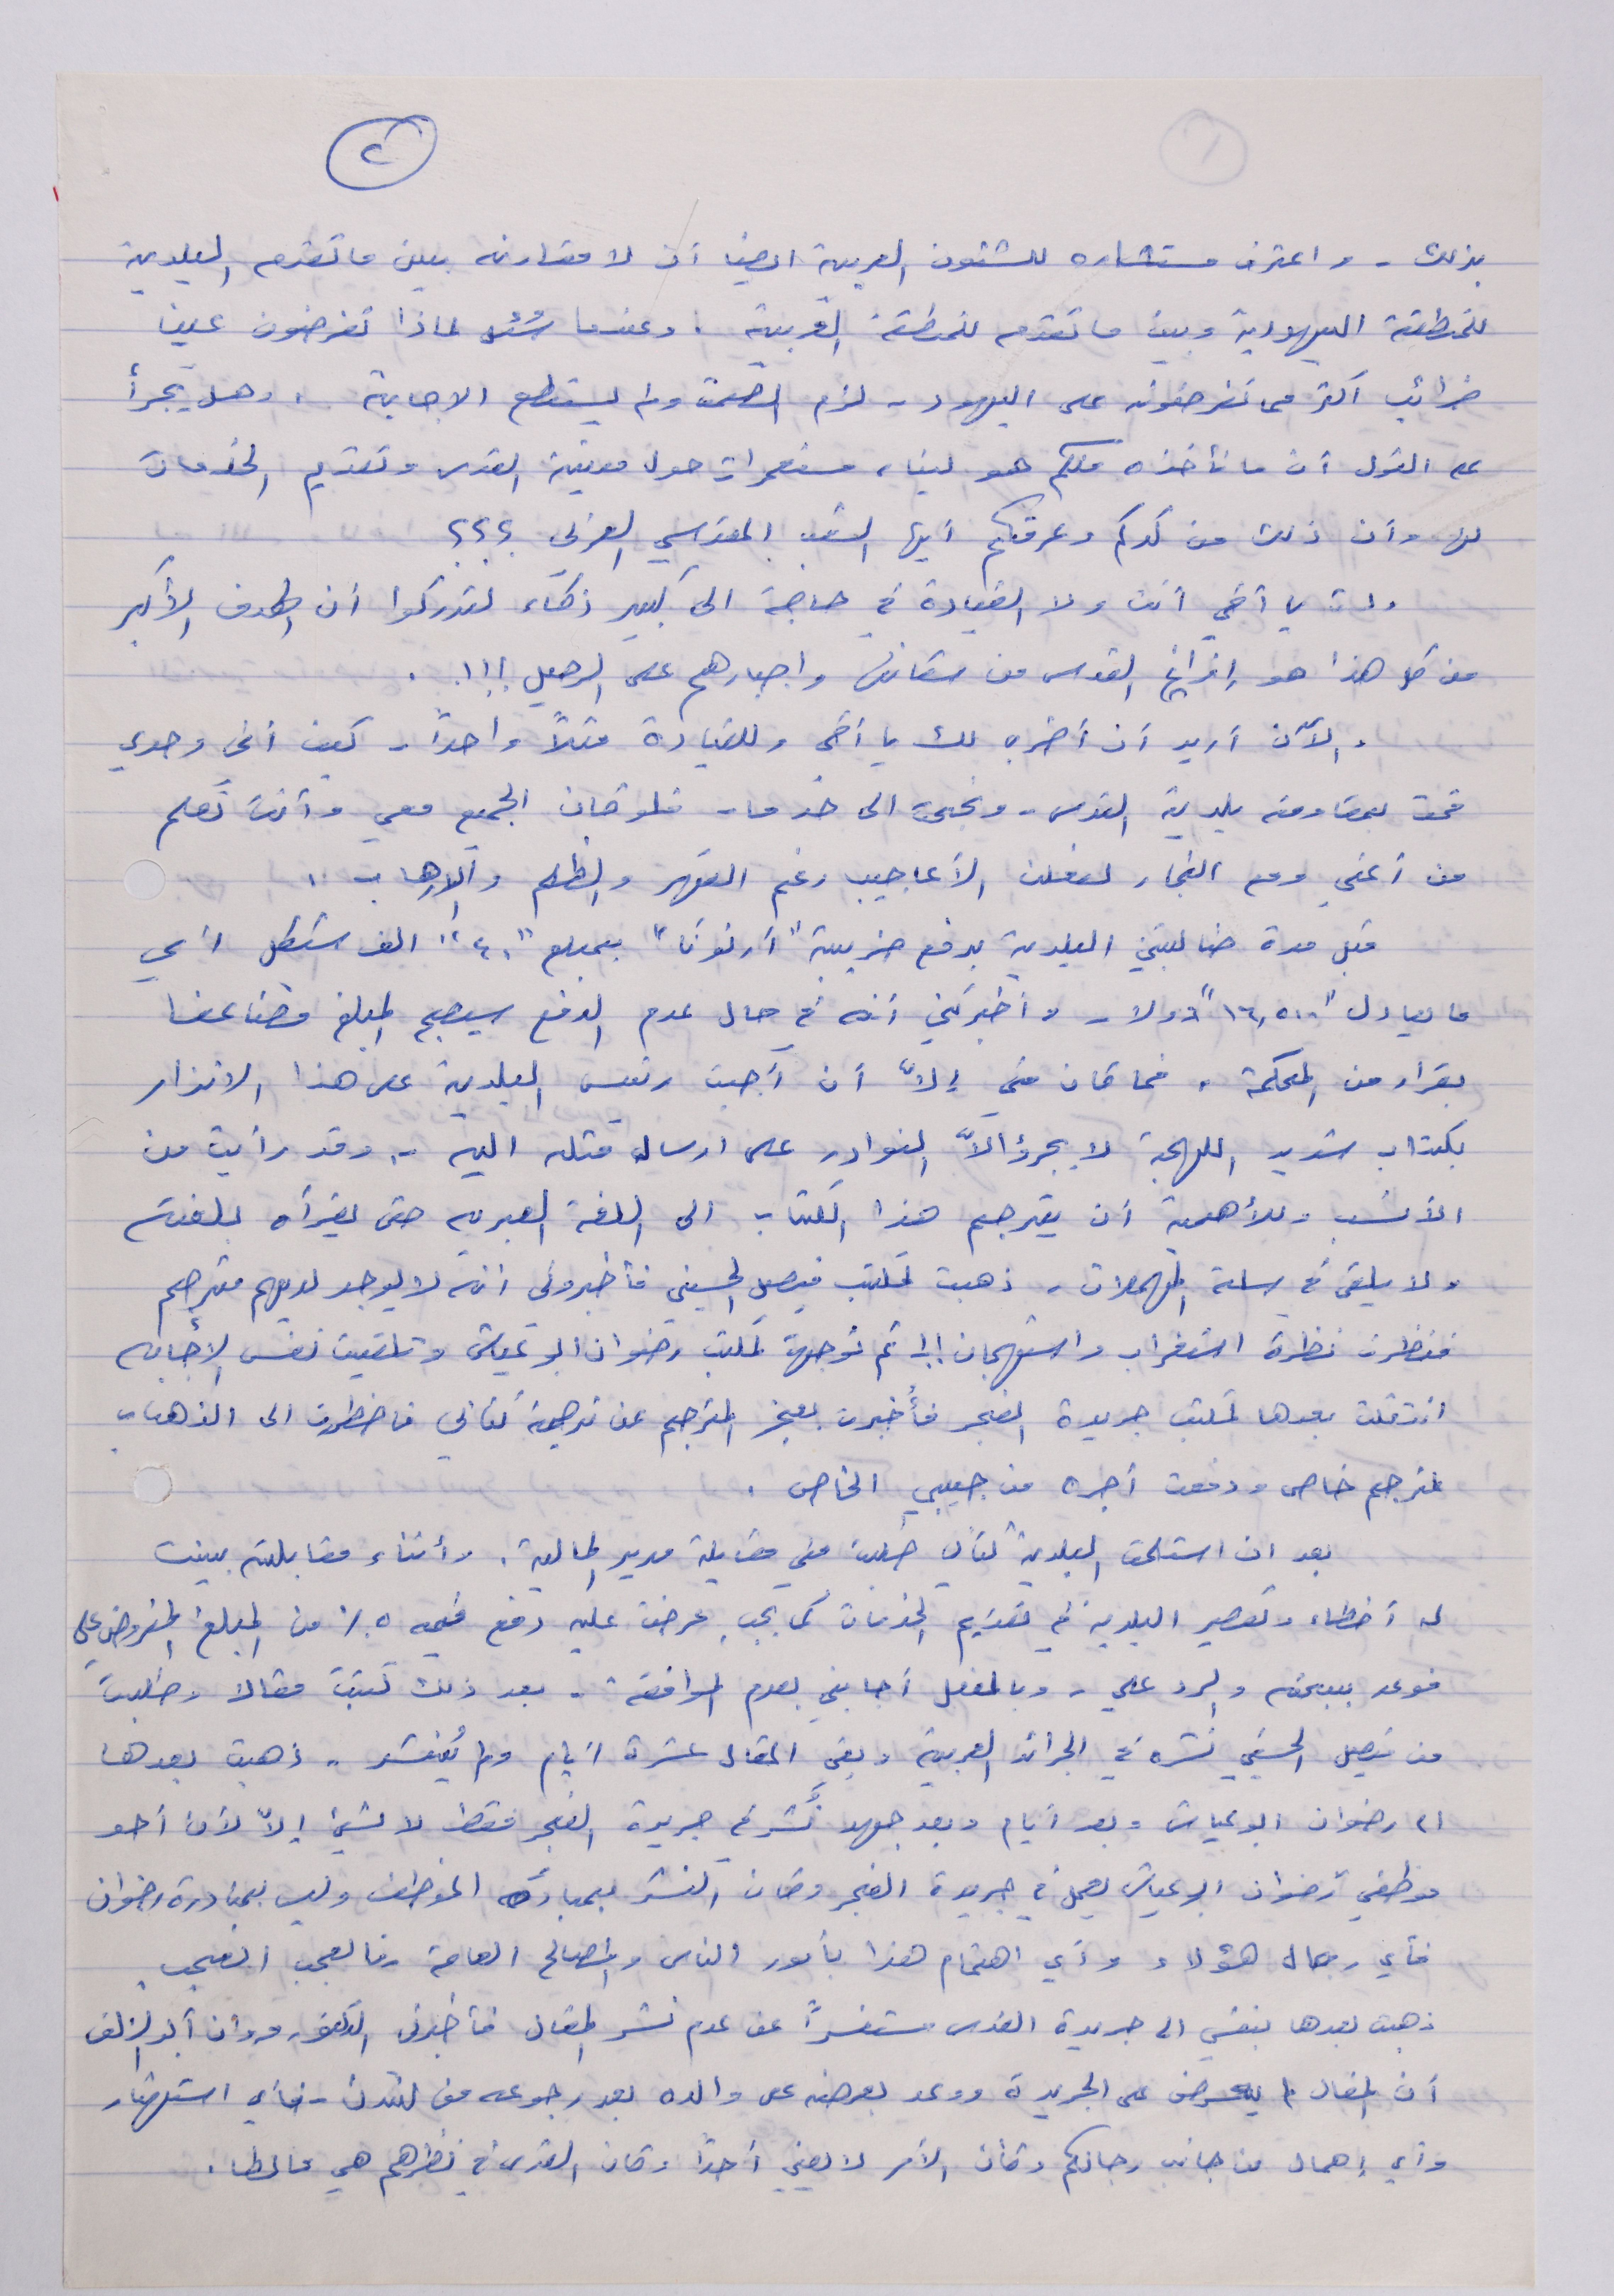 ٢
بذلك - واعترف مستشاره للشئون العربية ايضا أن لا مقارنه بين ما تقدمه البلدية
للمنطقة اليهودية وبين ما تقدمه للمنطقة العربية . وعندما سُئل لماذا تفرضون علينا
ضرائب أكثر مما تفرضونه على اليهود - لزم الصمت ولم يستطع الاجابة . وهل يجرأ
على القول أن ما نأخذه منكم هو لبناء مستعمرات حول مدينة القدس وتقديم الخدمات
لها وأن ذلك من كدكم وعرقكم أيها الشعب المقدسي العربي ؟؟؟
ولست يا أخي أنت ولا القيادة في حاجة الى كبير ذكاء لتدركوا أن الهدف الأكبر
من كل هذا هو إفراغ القدس من سكانها واجبارهم على الرحيل !!! .
والآن أريد أن أضرب لك يا أخي وللقيادة مثلاً واحداً - كيف أني وحدي
قمت بمقاومة بلدية القدس - ونجحت الى حد ما - فلو كان الجميع معي وأنت تعلم
من أعني ومع التجار لفعلنا الأعاجيب رغم القهر والظلم والارهاب .
قبل مدة طالبتني البلدية بدفع ضريبة "أرنونا" بمبلغ "٤٠" الف شيكل اي
ما يعادل "١٦,٥٠٠" دولار - وأخبرتني أنه في حال عدم الدفع سيصبح المبلغ مضاعفا
بقرار من المحكمة . فما كان مني إلاّ أن أجبت رئيس البلدية على هذا الانذار
بكتاب شديد اللهجة لا يجرؤ الاّ النوادر على ارسال مثله اليه - وقد رأيت من
الأنسب وللأهمية أن يترجم هذا الكتاب الى اللغة العبرية حتى يقرأه بلغته
ولا يلقى في سلة المهملات - ذهبت لمكتب فيصل الحسيني فأخبروني انه لا يوجد لديهم مترجم
فنظرت نظرة استغراب واستهجان !! ثم توجهت لمكتب رضوان ابو عياش وتلقيت نفس الإجابه
انتقلت بعدها لمكتب جريدة الفجر فأُخبرت بعجز المترجم عن ترجمة كتابي فاضطررت الى الذهاب
لمترجم خاص ودفعت أجره من جيبي الخاص .
بعد ان استلمت البلدية كتابي طلبت مني مقابلة مدير المالية . وأثناء مقابلته بينت
له أخطاء وتقصير البلدية في تقديم الخدمات كما يجب عرضت عليه دفع قيمه ٥٠٪ من المبلغ المفروض علي
فوعد ببحثه والرد علي - وبالفعل أجابني بعدم الموافقة - بعد ذلك كتبت مقالا وطلبت
من فيصل الحسيني نشره في الجرائد العربية وبقي المقال عشرة ايام ولم يُنشر - ذهبت بعدها
الى رضوان ابو عياش وبعد أيام وبعد جهد نُشر في جريدة الفجر فقط لا لشئ إلاّ لأن أحد
موظفي رضوان ابو عياش يعمل في جريدة الفجر وكان النشر بمبادرة الموظف وليس بمبادرة رضوان
فأي رجال هؤلاء وأي اهتمام هذا بأمور الناس والمصالح العامة فيا لعجب العجب .
ذهبت بعدها بنفسي الى جريدة القدس مستفسراً عن عدم نشر المقال فأخبرني الدكتور مروان أبو الزلف
أن المقال لم يعرض على الجريدة ووعد بعرضه على والده بعد رجوعه من لندن - فأي استهتار
وأي إهمال من جانب رجالكم وكأن الأمر لا يعني أحداً وكأن القدس في نظرهم هي مالطا .